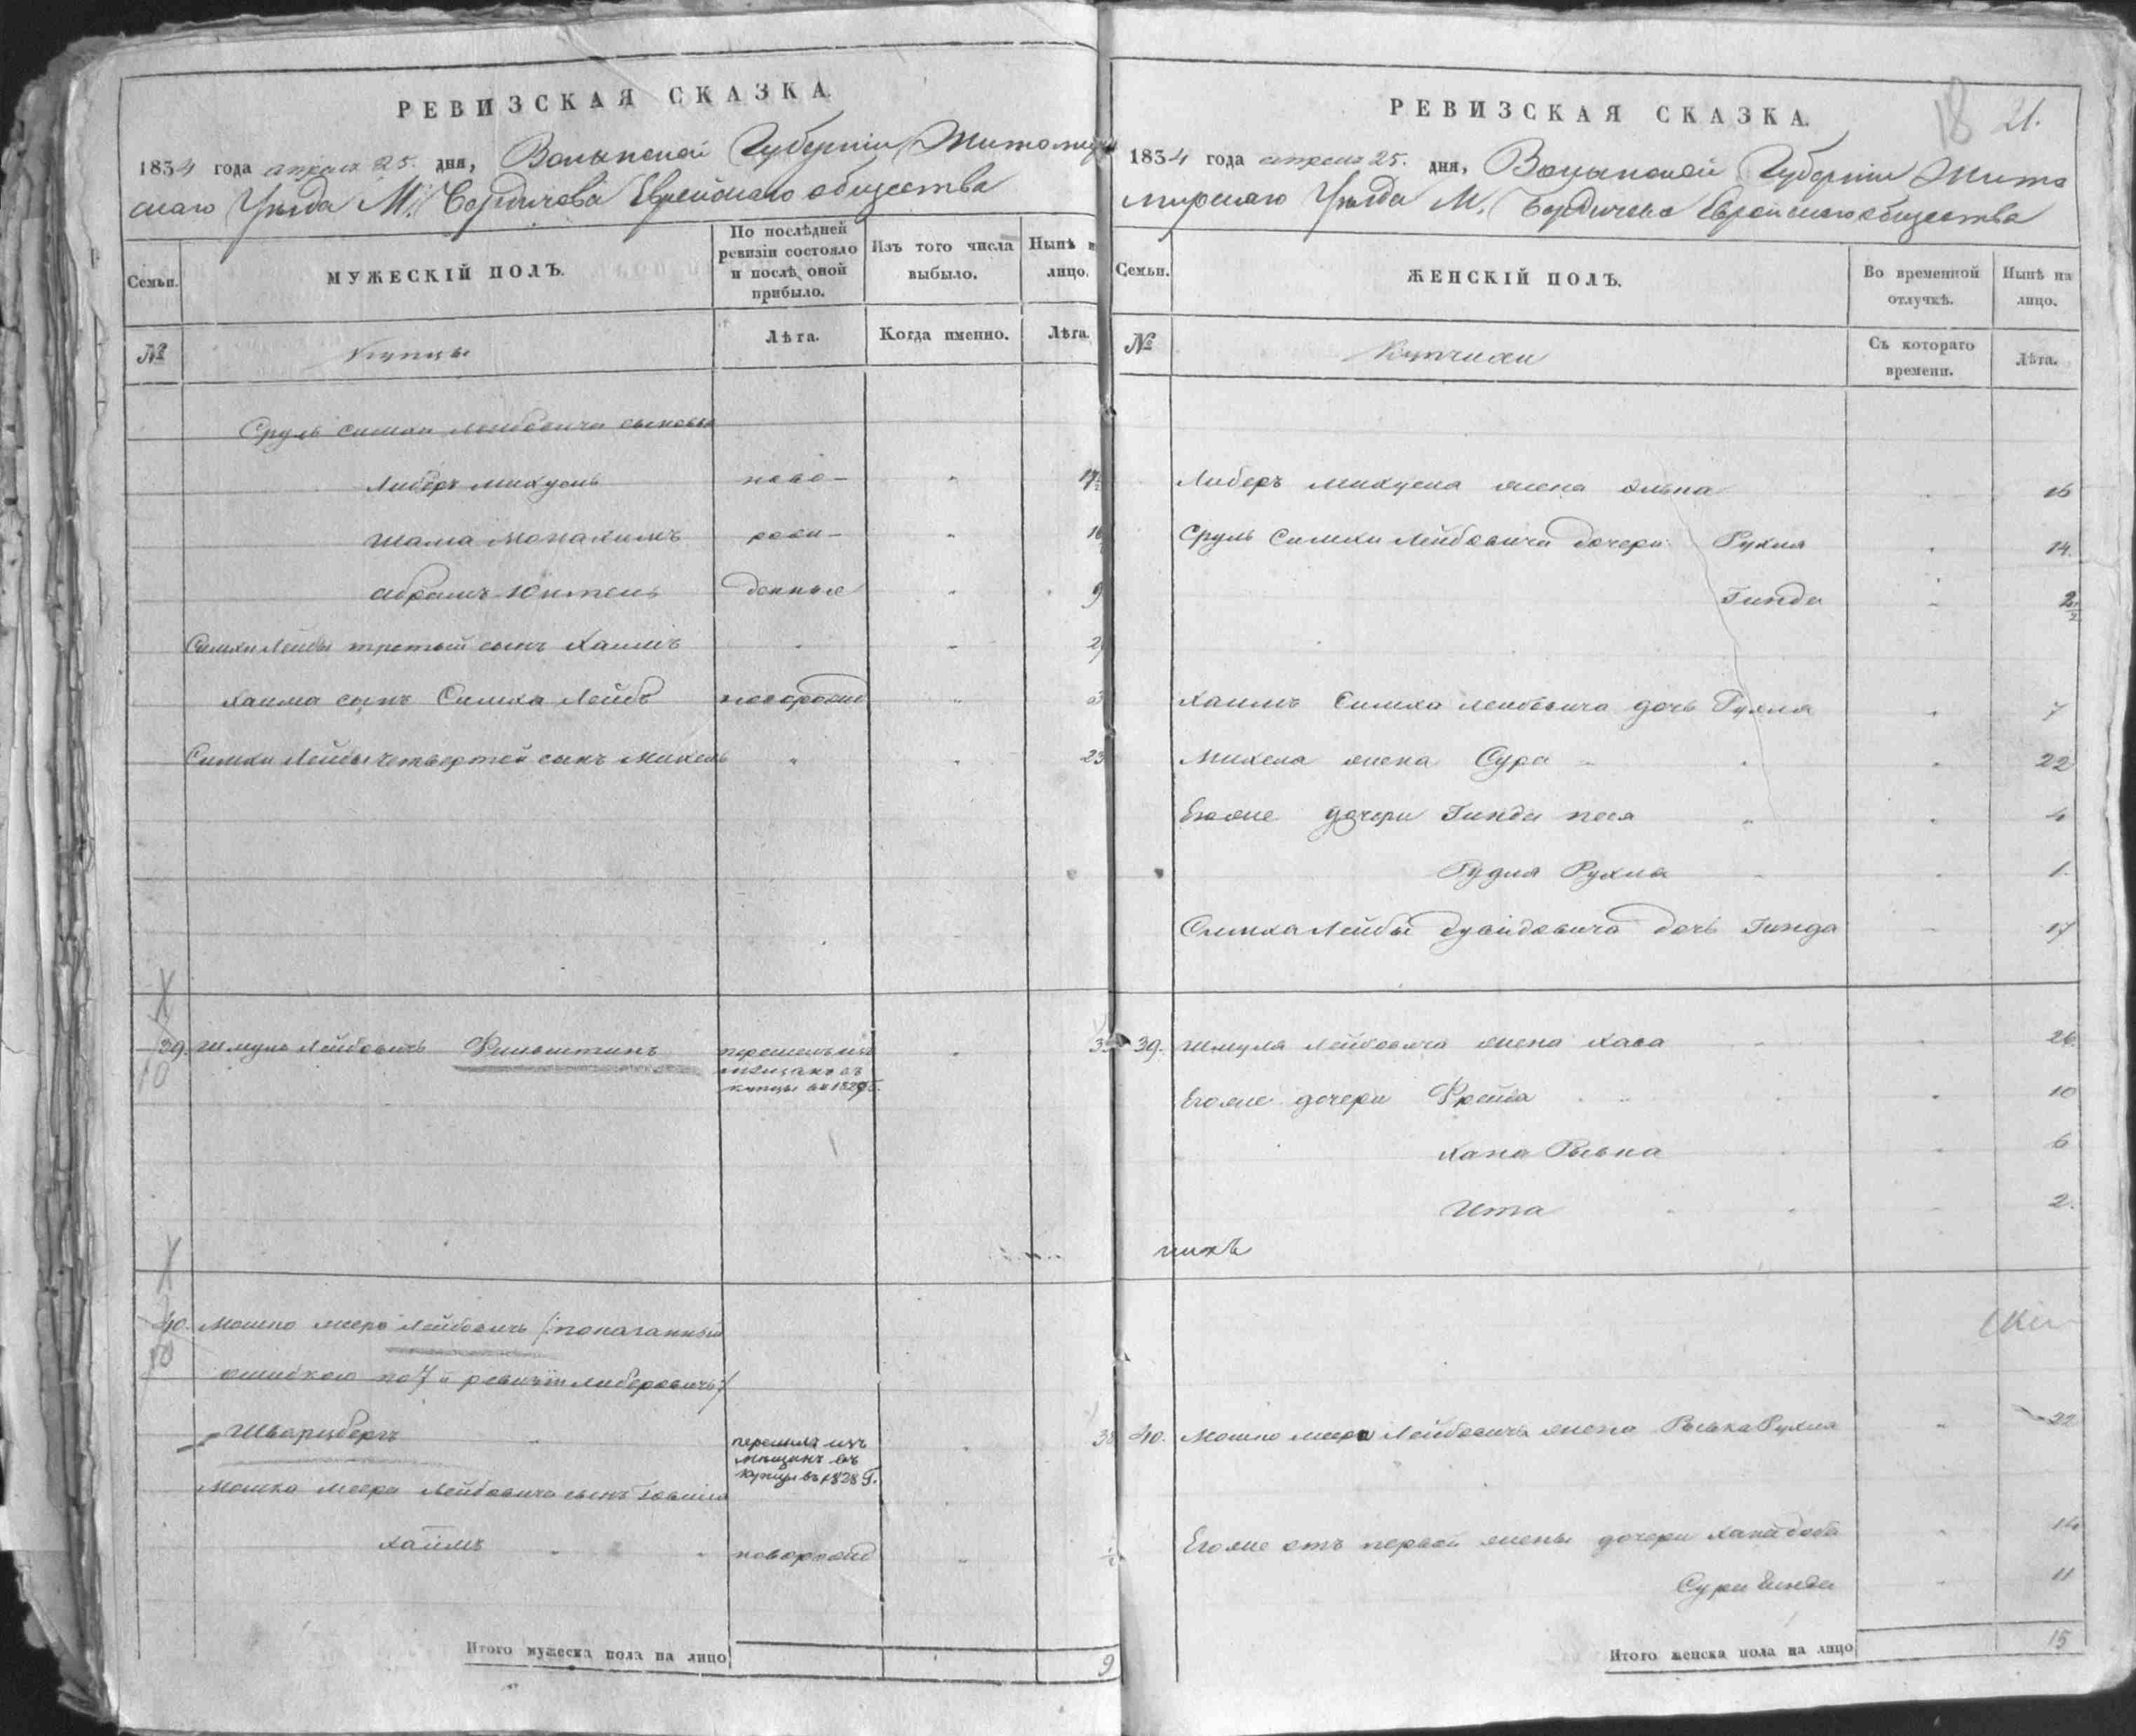 РЕВИЗСКАЯ СКАЗКА.
1834 года апреля 25. дня, Волынской Губерніи Житомир
скаго Уѣзда М. Бердичева Еврейскаго общества
Семьи.
МУЖЕСКІЙ ПОЛЪ.
По послѣдней ревизіи состояло и послѣ оной прибыло.
Изъ того числа выбыло.
Нынѣ на лицо.
№
Купцы
Лѣта.
Когда именно.
Лѣта.
Сруль Симхи Лейбовича сыновья
Либеръ Михуель ново- 17
Шама Монахимъ рож- 10
Абрамъ денные 9
Симхи Лейбы третій сынъ Хаимъ
Хаима сынъ Симха Лейбъ новорожд 3
Симхи Лейбы четвертый сынъ Михель 23
39. Шмуль Лейбовичъ Финштинъ перешелъ изъ
мещанъ въ
купцы въ 1829 г.
40. Мошко Мееръ Лейбовичъ /:показанный
ошибкою по 7й ревизіи Либеровичъ:/
Шварцбергъ перешелъ изъ
мещанъ въ
купцы въ 1828 г. 38
Мошка Меера Лейбовича сынъ
Хаимъ новорожд ½
Итого мужеска пола на лицо 9
РЕВИЗСКАЯ СКАЗКА.
18 21.
1834 года апреля 25. дня, Волынской Губерніи Жито
мирскаго Уѣзда М. Бердичева Еврейскаго общества
Семьи.
ЖЕНСКІЙ ПОЛЪ.
Во временной отлучкѣ.
Нынѣ на лицо.
№
Купчихи
Съ котораго времени.
Лѣта.
Либеръ Михуела жена Элька 16
Сруль Симхи Лейбовича дочери Рухля 14.
Гинда 2½
Хаимъ Симха Лейбовича дочь Рухля 7
Михеля жена Сура 22
Егоже дочери Гинда Песя 4
Рухля 1.
Симха Лейбы Дувидовича дочь Гинда 17
39. Шмуля Лейбовича жена Хава 26.
Егоже дочери Фрейда 10
Хана Рывка 6
Ита 2.
40. Мошко Меера Лейбовича жена Рывка Рухля 22
Егоже отъ первой жены дочери Хана 14
Сура 11
Итого женска пола на лицо 15